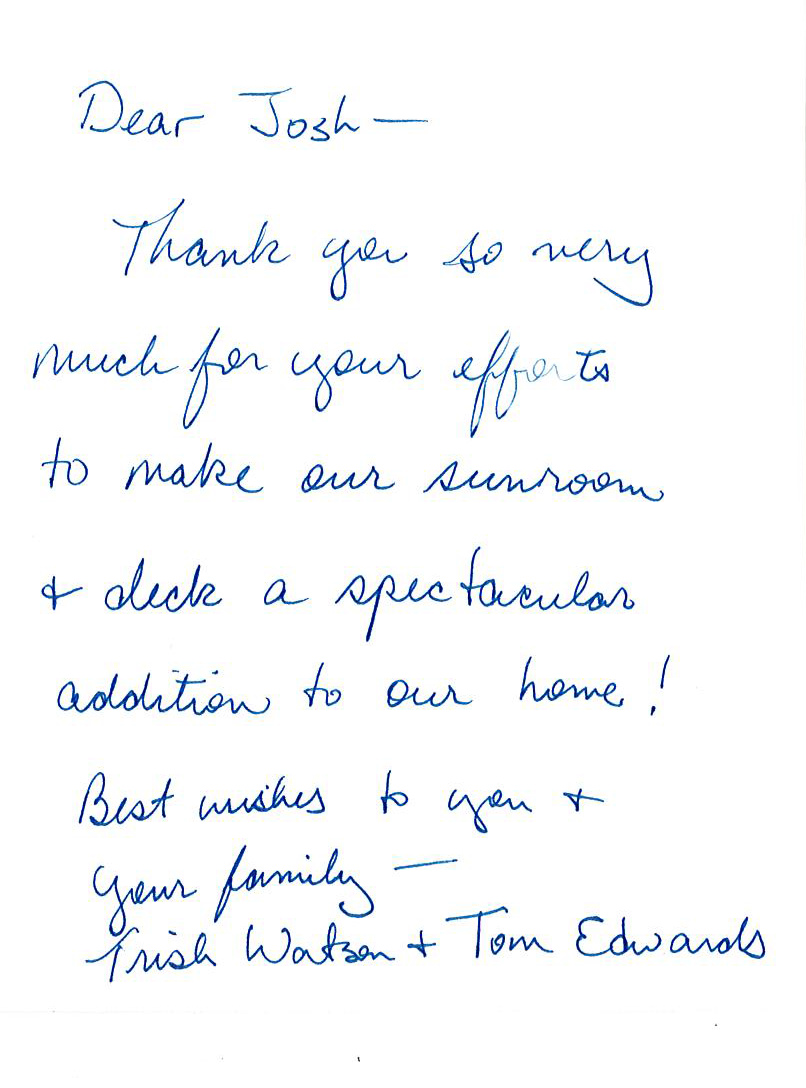 Dear Josh —
Thank you so very
much for your efforts
to make our sunroom
+ deck a spectacular
addition to our home!
Best wishes to you +
your family —
Trish Watson + Tom Edwards